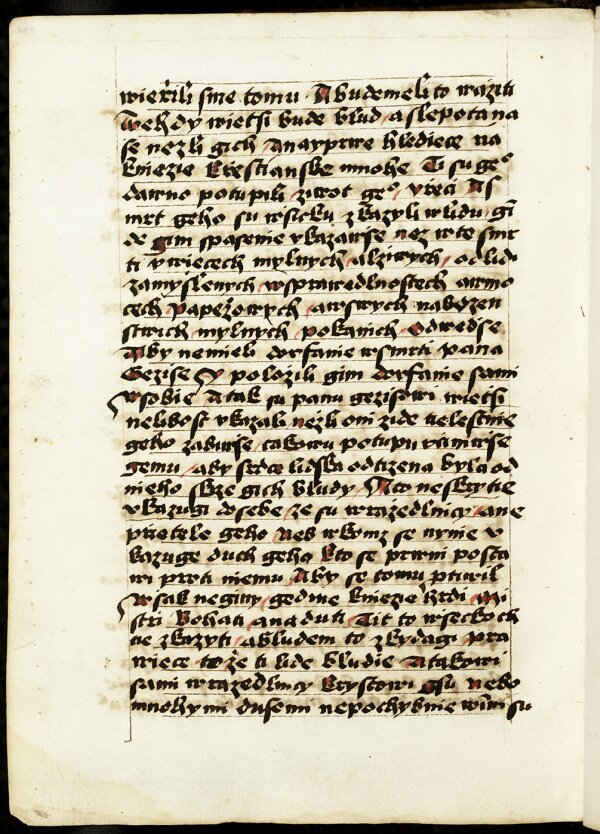 wierzili sme tomu A budemeli to waziti
Tehdy wietsi bude blud a slepota na
se nezli gich A nayprwe hlediece na
kniezie Krestianske mnohe Ti su geº
dawno potupili ziwot geº y rzeci A s
mrt geho su wsicku zkazyli w lidu gi
de gim spasenie vkazawse nez w te smr
ti y wiecech mylnych a lziwych od lidi
zamyslenych w sprawedlnostech
cech papezowych a w swych nabozen
stwich mylnych pokanich odwedse
Aby nemieli dorfanie w smrti pana
Gezise y polozili gim dorfanie sami
w sobie A tak su panu gezisowi wietsi
nelibost vkazali nezli oni zide tielestnie
geho zabiwse takowu potupu vciniwse
gemu aby srdce lidska odcizena byla od
nieho skrze gich bludy A to neskrytie
vkazugi do sebe ze su wrazedlnicy a ne
prietele geho neb w komz se nynie v
kazuge duch geho Kto se prwni posta
wi proti niemu Aby se tomu protiwil
wsak neginy gedine kniezie hrdi mi
stri bohati a naduti Tit to wsecko ch
tie zkazyti a bludem to zkydagi pra
wiece to ze ti lide bludie A takowi
sami wrazedlnicy krystowi gsu nebo
mnohymi dusemi nepochybnie winni su